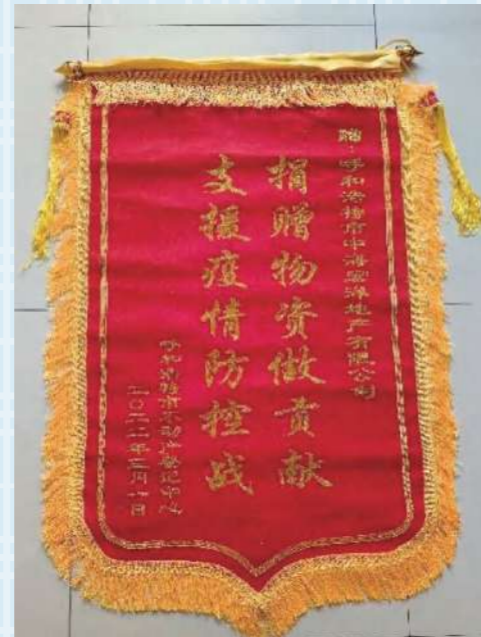 赠：呼和浩特市中海宏洋地产有限公司
捐赠物资做贡献
支援疫情防控战
呼和浩特市不动产登记中心
二〇二二年三月一日